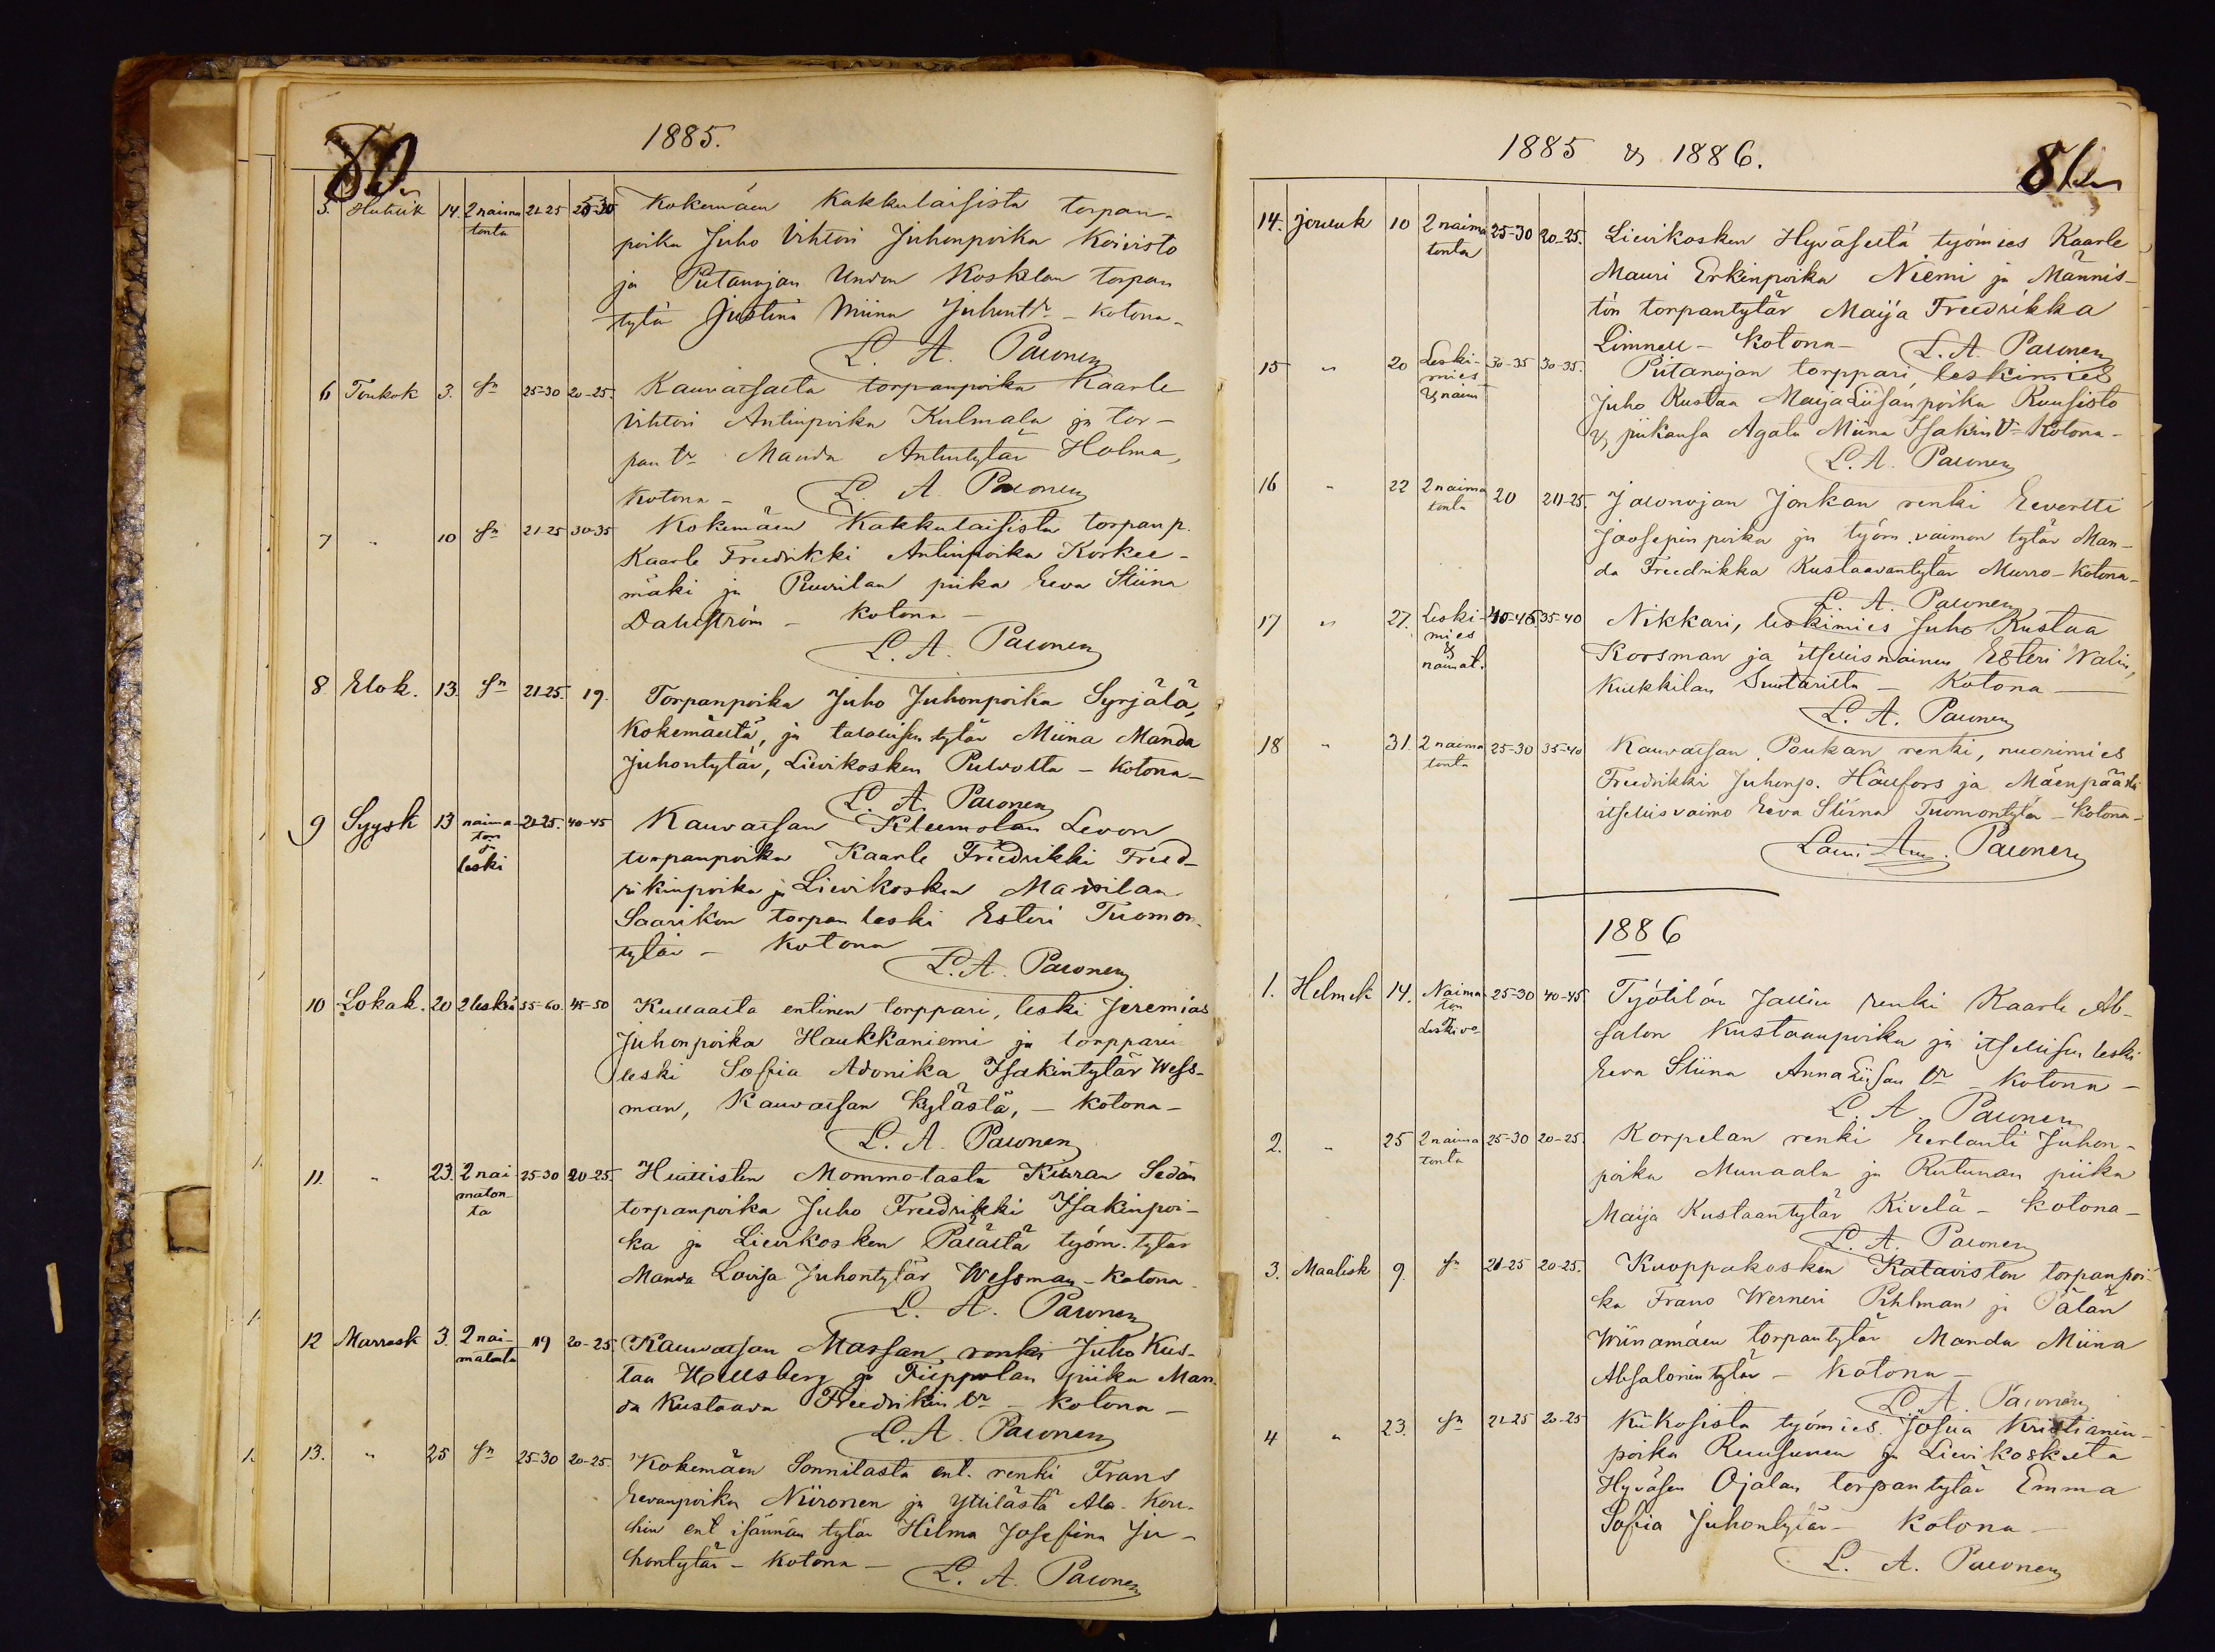 80
1885.
5. Huhtik 14. 2 naima tonta 21-25 25-30 Kokemäen Kakkulaisista torpan-
poika Juho Vihtori Juhonpoika Koivisto
ja Piitanojan Undon Kosklan torpan
tytär Justina Miina Juhontr - kotona -
L. A. Paconen
6 Toukok 3. 25-30 20-25. Kauvatsasta torpanpoika Kaarle
Vihtori Antinpoika Kulmala ja tor-
pan tr Manda Antintytär Holma,
kotona - L. A. Paconen
7 " 10 21-25 30-35 Kokemäen Kakkulaisista torpanp.
Kaarle Freedrikki Antinpoika Korkee-
mäki ja piika Eeva Stiina
Dahlström - kotona -
L. A. Paconen
8. Elok. 13. 21-25. 19. Torpanpoika Juho Juhonpoika Syrjälä,
Kokemäeltä, ja tytär Miina Manda
Juhontytär, Lievikosken - kotona -
L. A. Paconen
9 Syysk 13 naima-ton & leski 21-25. 40-45 Kauvatsan Kleemolan Levon
torpanpoika Kaarle Friedrikki Freed-
rikinpoika ja Lievikosken
Saarikon torpan leski Esteri Tuomon
tytär - kotona
L. A. Paconen
10 Lokak. 20 2 leskiä 55-60. 45-50 Kullaalta entinen torppari, leski Jeremias
Juhonpoika Haukkaniemi ja torpparin
leski Sofia Adonika Isakintytär Wess-
man, Kauvatsan kylästä, - kotona -
L. A. Paconen
11. " 23. 2 nai maton-ta 25-30 20-25. Mommolasta Sedän
torpanpoika Juho Freedrikki Isakinpoi-
ka ja Lievikosken työm. tytär
Manda Lovisa Juhontytär Wessman - kotona -
L. A. Paconen
12 Marrask 3. 2 nai-matonta 19 20-25. Kauvatsan renki Juho Kus-
taa Hellsberg ja Piippolan piika Man-
da Kustaava Freedrikin tr - kotona -
L. A. Paconen
1. 13. " 25 25-30 20-25. Kokemäen Sonnilasta ent. renki Frans
Eevanpoika Niironen ja Yttilästä Ala-
ent isännän tytär Hilma Josefina Ju-
hontytär - kotona - L. A. Paconen
1885 & 1886.
81
14. Jouluk 10 2 naima tonta 25-30 20-25. Lievikosken työmies Kaarle
Mauri Erkinpoika Niemi ja Männis-
tön torpantytär Maija Freedrikka
- kotona - L. A. Paconen
15 " 20 Leski-mies & naim 30-35 30-35. Piitanojan torppari, leskimies
Juho Kustaa Maija Liisanpoika Ruusisto
& piikansa Agata Miina Isakin tr - Kotona -
L. A. Paconen
16 " 22 2 naima tonta 20 20-25. Jalonojan Jonkan renki Eevertti
Joosepin poika ja työm. vaimon tytär Man-
da Freedrikka Kustaavantytär Murro - kotona -
L. A. Paconen
17 " 27. Leski-mies & naimat. 40-45 35-40 Nikkari, leskimies Juho Kustaa
Korsman ja itsellisnainen Esteri Walin,
Kiukkilan - Kotona -
L. A. Paconen
18 " 31. 2 naima tonta 25-30 35-40 Kauvatsan Paukan renki, nuorimies
Freedrikki Juhonp. Hållfors ja Mäenpään
itsellisvaimo Eeva Stiina Tuomontytär - kotona -
Lauri Aug. Paconen
1886
1. Helmik 14. Naima ton & Leskiva 25-30 40-45 Työtilän Jallin renki Kaarle Ab-
salon Kustaanpoika ja itsellisen leski
Eeva Stiina Anna Liisan tr - kotona -
L. A. Paconen
2. " 25 2 naima tonta 25-30 20-25. Korpelan renki Eerlanti Juhon-
poika ja piika
Maija Kustaantytär Kivelä - kotona -
L. A. Paconen
3. Maalisk 9. 21-25 20-25. Kuoppakosken Kataviston torpanpoi-
ka Frans Werneri Pihlman ja Pälän
Wiinamäen torpantytär Manda Miina
Absalomintytär - kotona -
L. A. Paconen
4 " 23. 21-25 20-25 työmies Josua Kristianin-
poika Ruusunen ja Lievikoskelta
Ojalan torpantytär Emma
Sofia Juhontytär - kotona -
L. A. Paconen